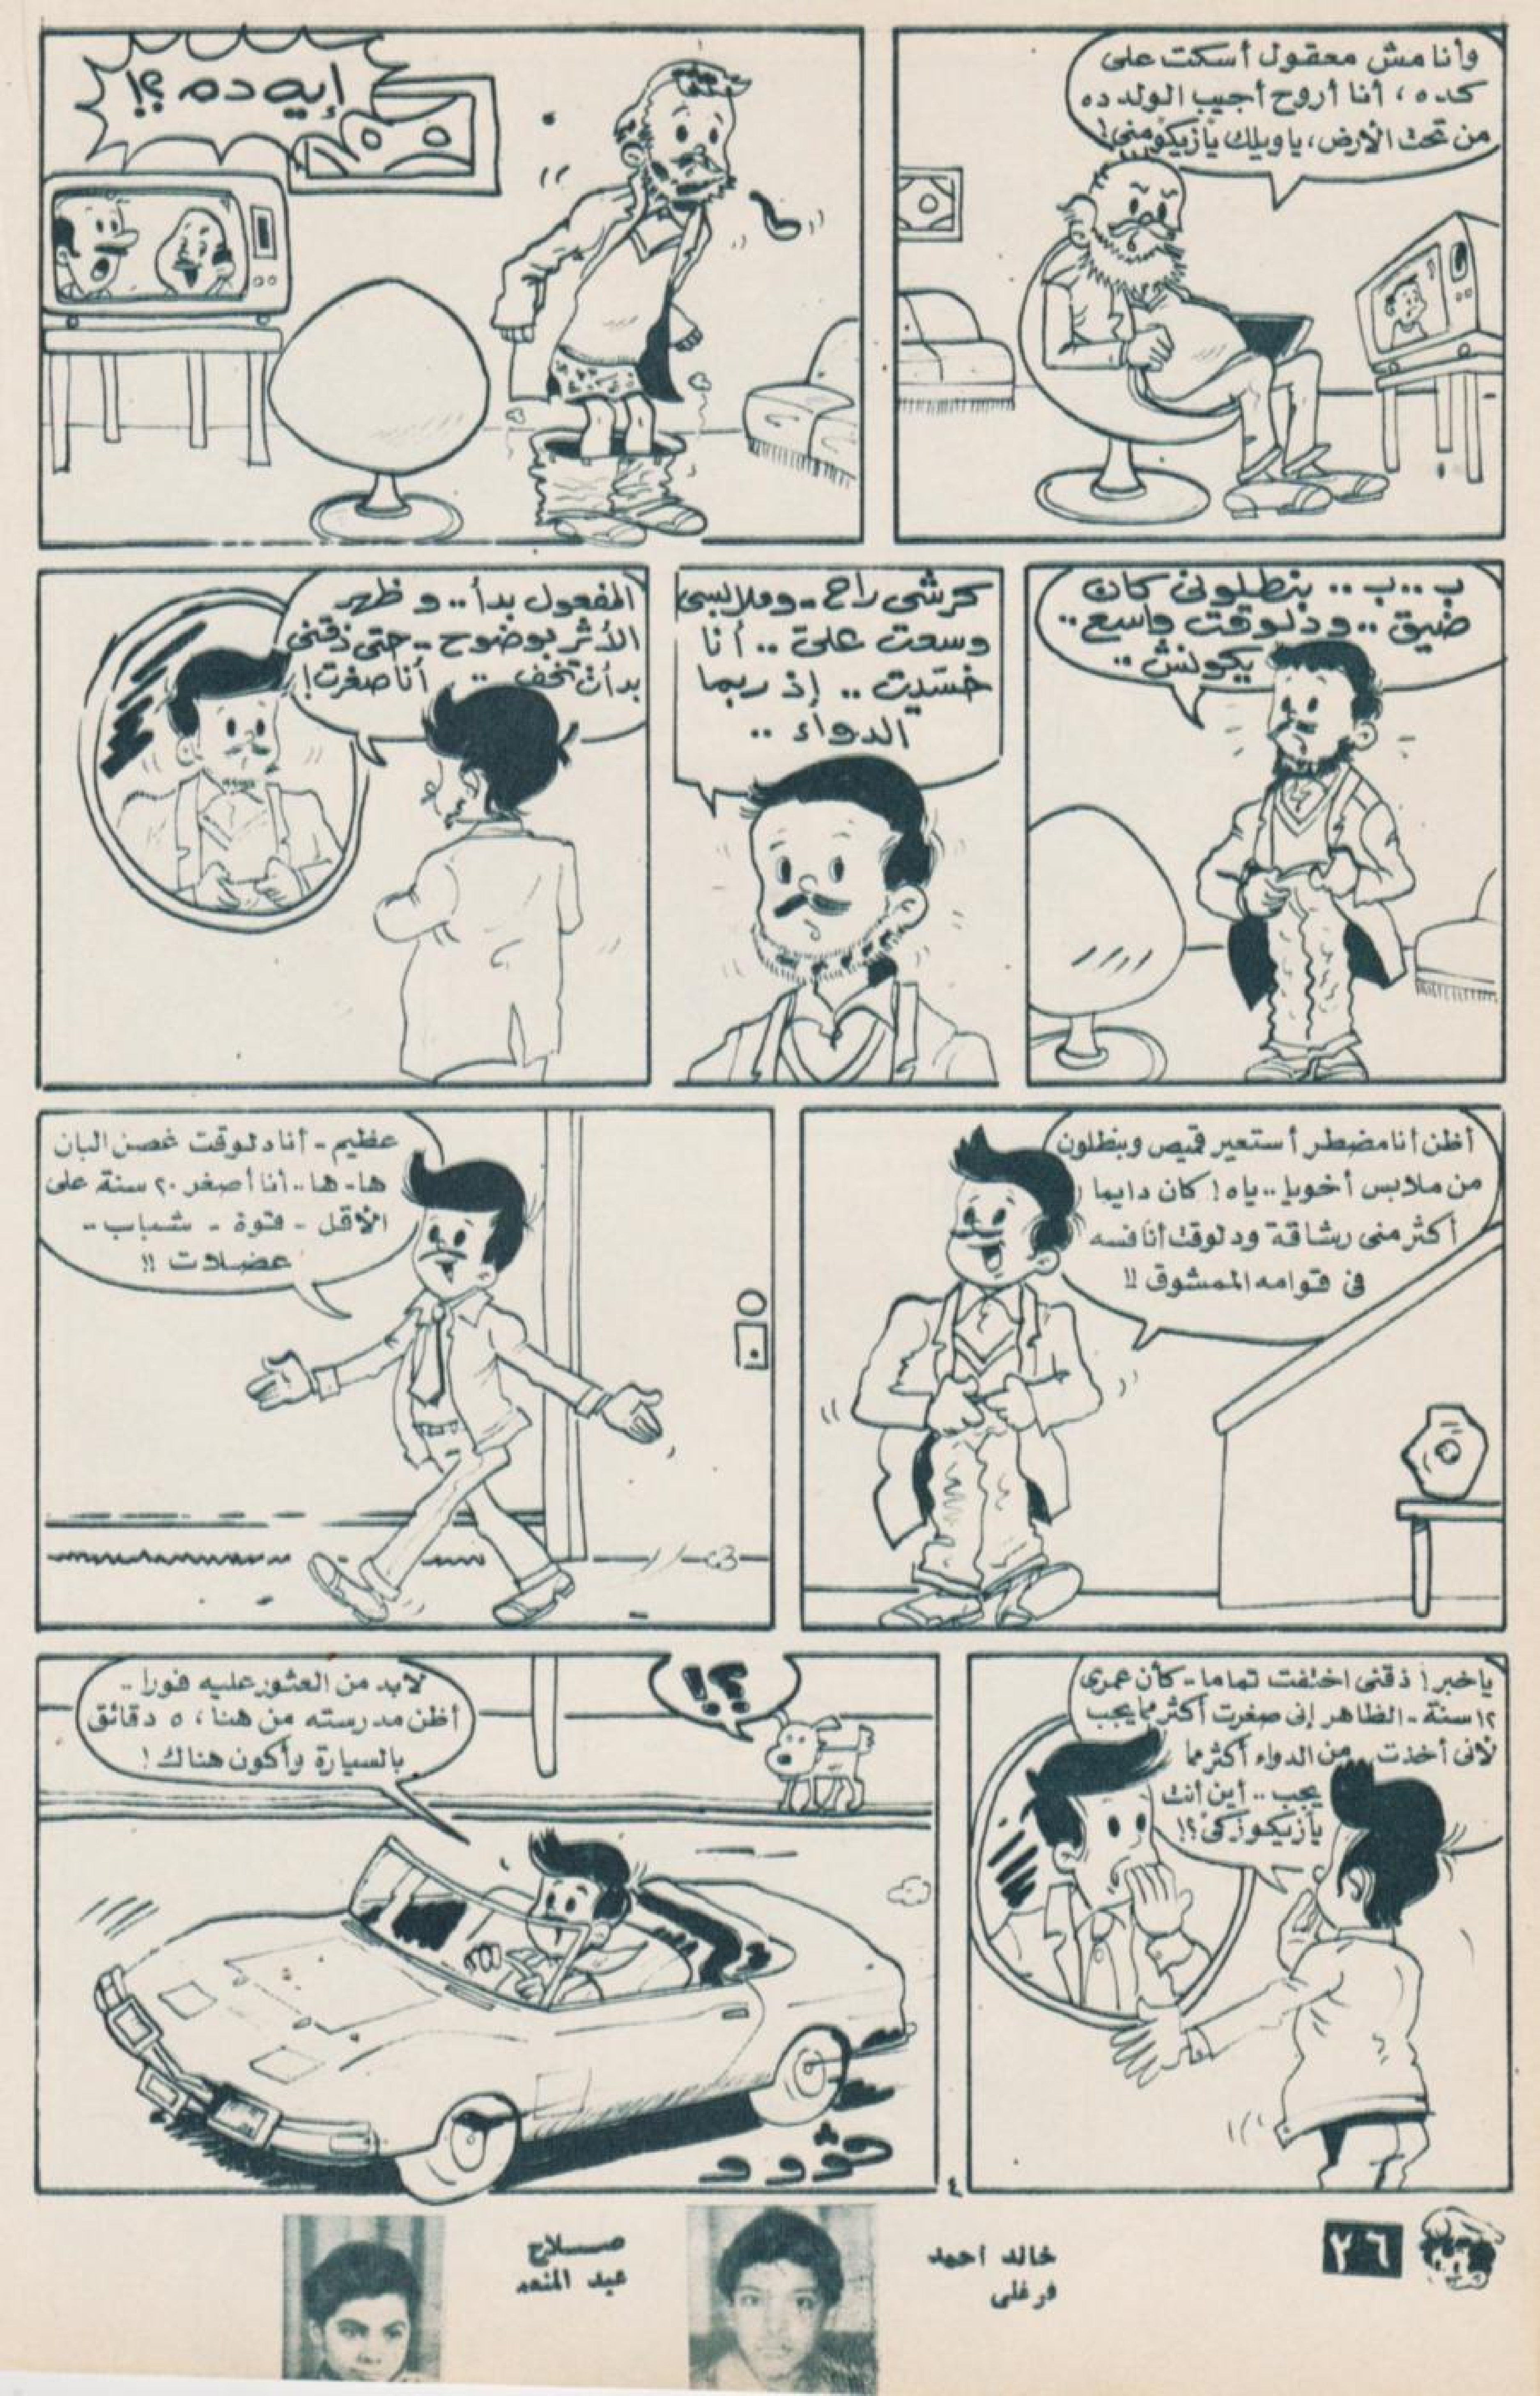 وأنا مش معقول أسكت على
كده، أنا أروح أجيب الولد ده
من تحت الأرض، ياويلك يازيكو منى!
إيه ده ؟!
ب..ب.. بنطلونى كان
ضيق.. ودلوقت واسع..
يكونش..
كرشى راح - وملابسى
وسعت على.. أنا
خسّيت.. إذ ربما
الدواء..
المفعول بدأ.. و ظهر
الأثر بوضوح - حتى ذقنى
بدأت تخف.. أنا صغرت!
أظن أنا مضطر أستعير قميص وبنطلون
من ملابس أخويا.. ياه! كان دايما
أكثر منى رشاقة ودلوقت أنا فسه
فى قوامه الممشوق !!
عظيم - أنا دلوقت غصن البان
ها - ها.. أنا أصغر ٢٠ سنة على
الأقل - قوة - شباب..
عضلات !!
ياخبر! ذقنى اختفت تماما - كأن عمرى
١٢ سنة - الظاهر إنى صغرت أكثر مما يجب
لأنى أخذت من الدواء أكثر مما
يجب.. أين أنت
يازيكوزكى؟!
؟!
لابد من العثور عليه فورا..
أظن مدرسته من هنا، ٥ دقائق
بالسيارة وأكون هناك!
ڤووو
٤
٢٦
خالد احمد
فرغلى
صلاح
عبد المنعم